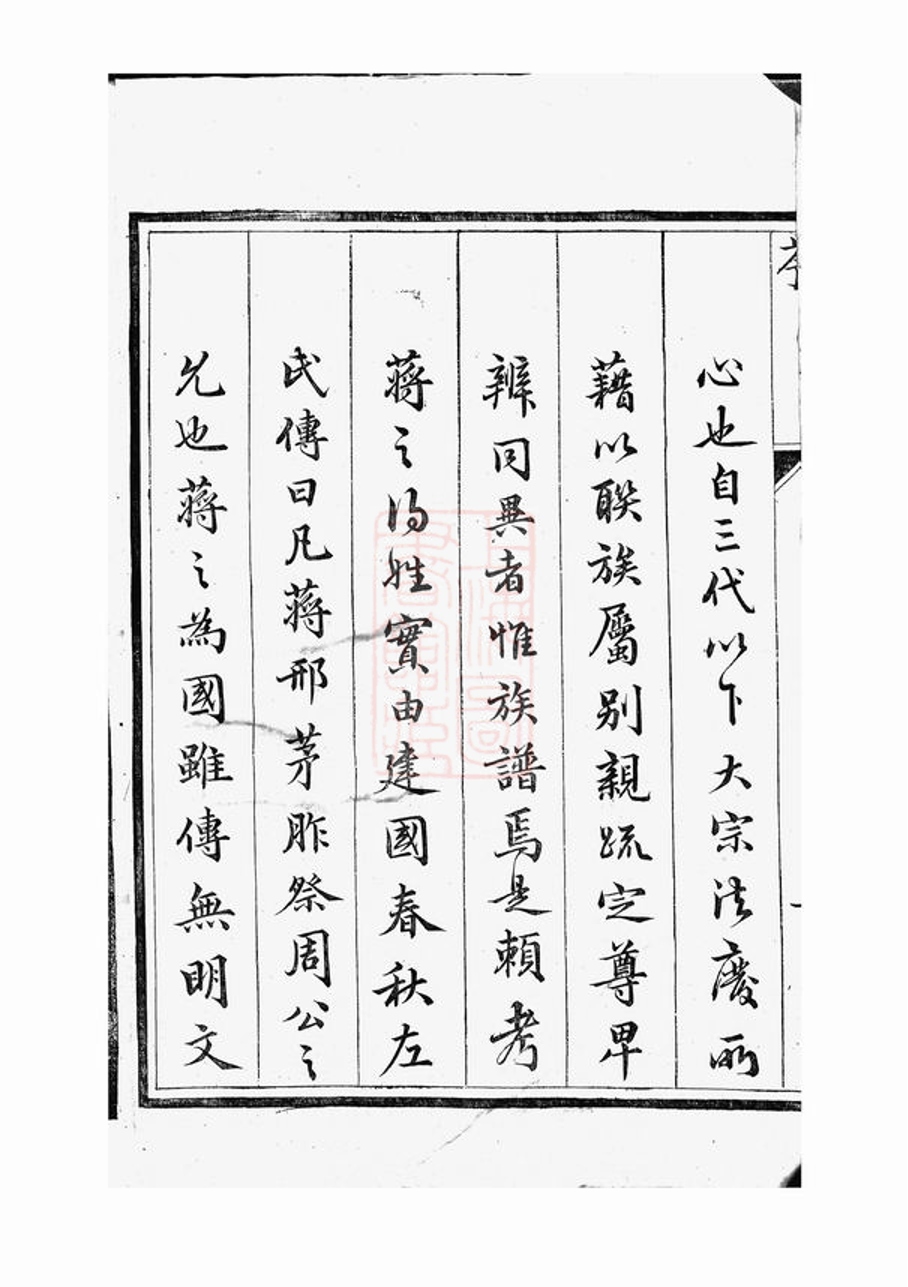 心也自三代以下大宗法廢而
藉以聯族屬别親疏定尊卑
辨同異者惟族譜焉是賴考
蔣之得姓實由建國春秋左
氏傳曰凡蔣邢茅胙祭周公之
允也蔣之為國雖傳無明文